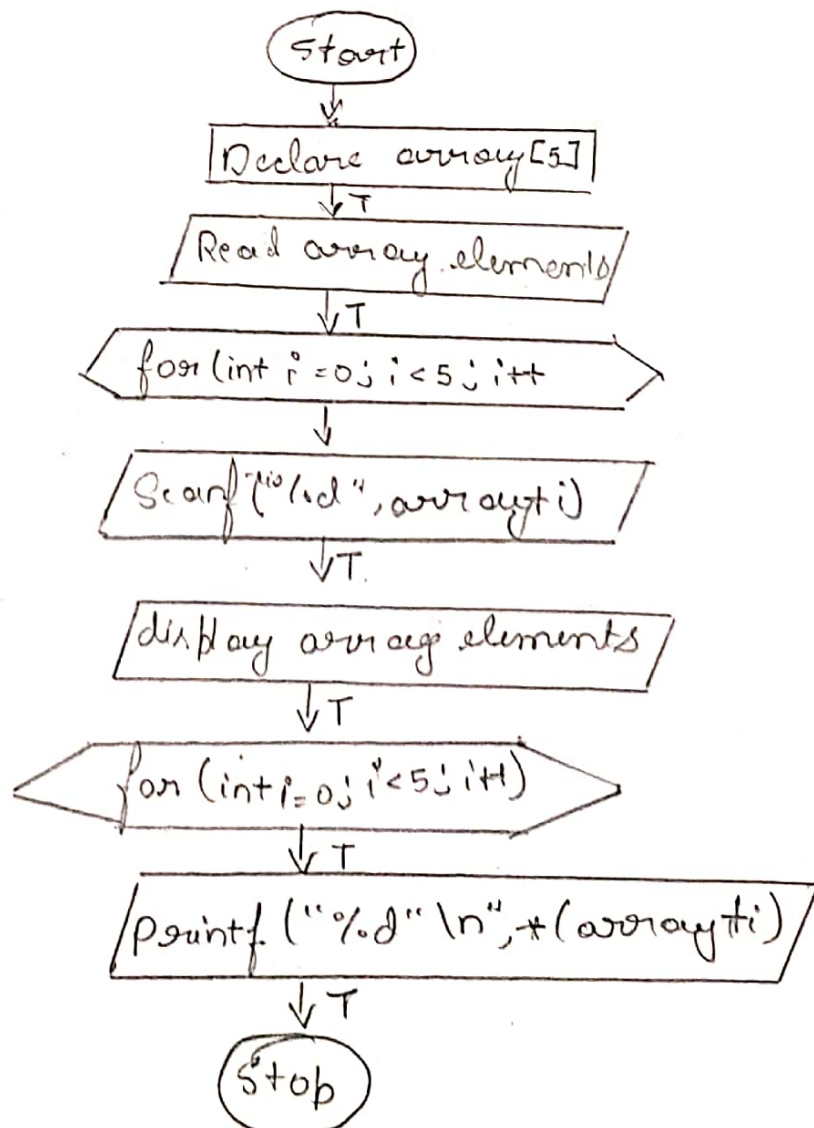 Start
Declare array[5]
T
Read array elements
T
for (int i=0; i<5; i++
Scanf("%d", array+i)
T.
display array elements
T
for (int i=0; i<5; i++)
T
printf ("%d" \n", *(array+i)
T
Stop